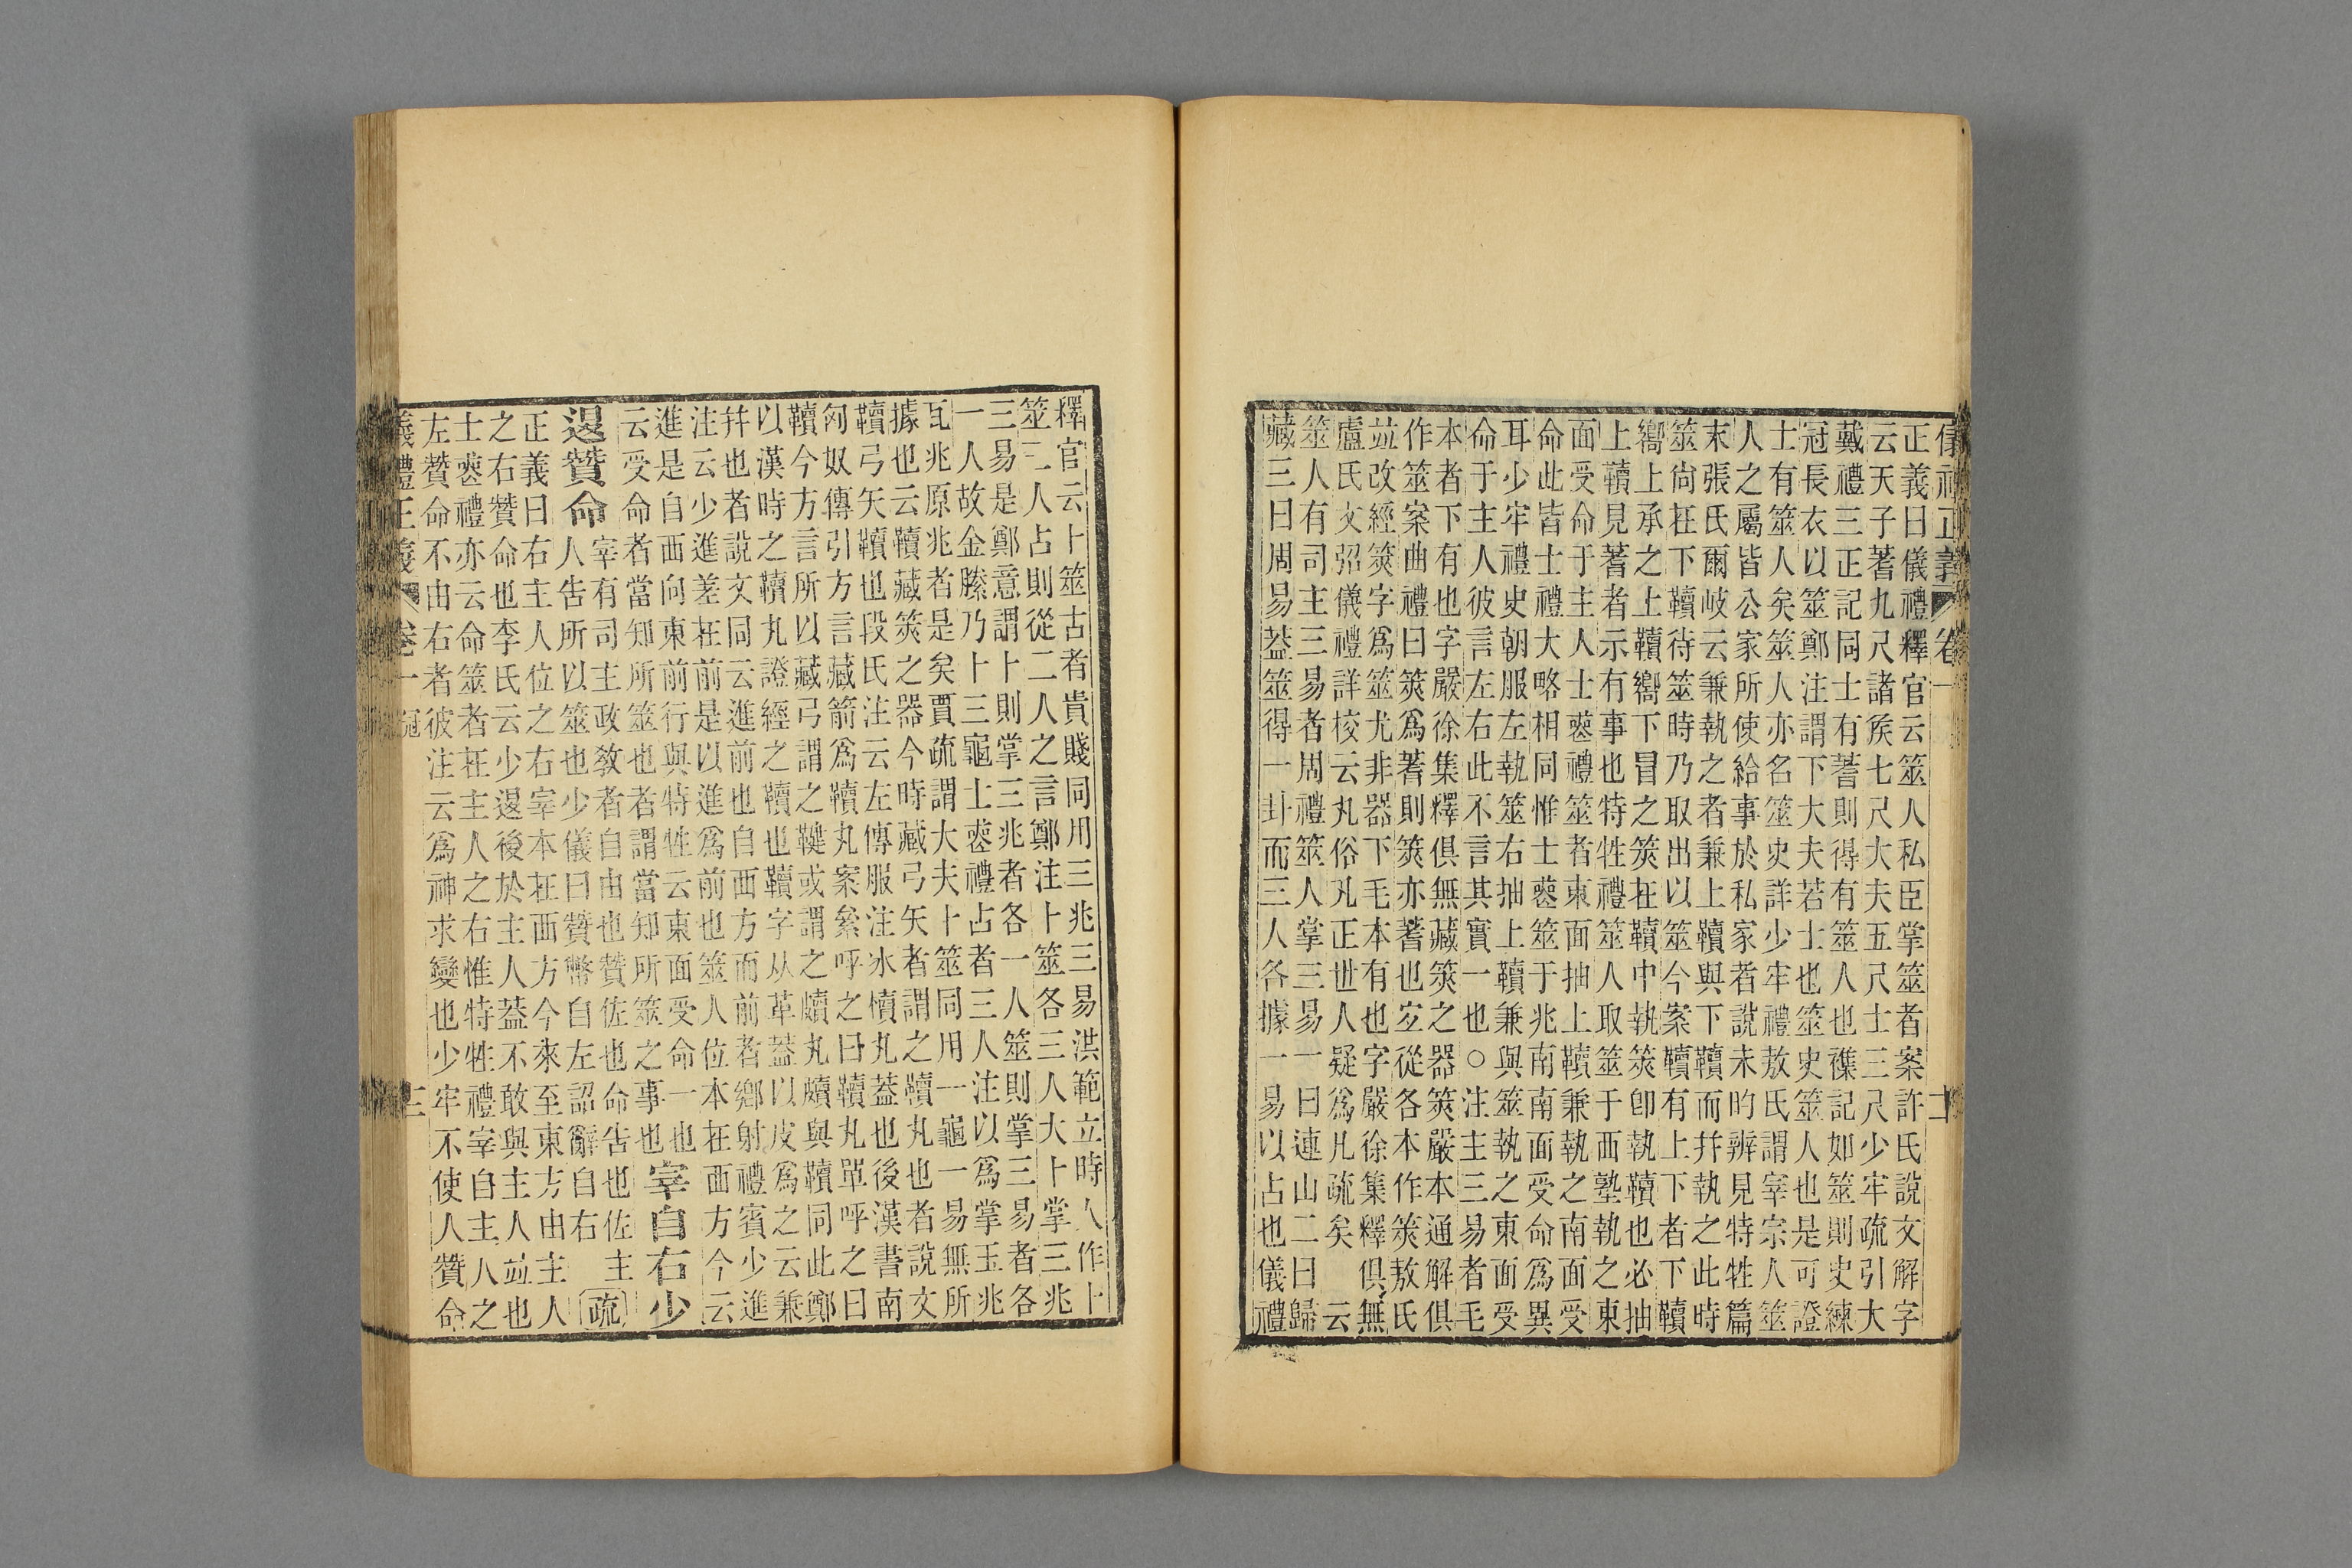 儀禮正義 卷一 二
正義曰儀禮釋官云筮人私臣掌筮者案許氏說文解字
云天子蓍九尺諸矦七尺大夫五尺士三尺少牢疏引大
戴禮三正記同士有蓍則得有筮人也襍記如筮則史練
冠長衣以筮鄭注謂下大夫若士也筮史筮人也是可證
士有筮人矣筮人亦名筮史詳少牢禮敖氏謂宰宗人筮
人之屬皆公家所使給事於私家者說未旳辨見特牲篇
末張氏爾岐云兼執之者兼上韇與下韇而幷執之此時
筮尙在下韇待筮時乃取出以筮今案韇有上下者下韇
嚮上承之上韇嚮下冒之筴在韇中執筴卽執韇也必抽
上韇見蓍者示有事也特牲禮筮人取筮于西塾執之東
面受命于主人士䘮禮筮者東面抽上韇兼執之南面受
命此皆士禮大略相同惟士䘮筮于兆南南面受命爲異
耳少牢禮史朝服左執筮右抽上韇兼與筮執之東面受
命于主人彼言左右此不言其實一也○注主三易者毛
本者下有也字嚴徐集釋俱無藏筴之器筴嚴本通解俱
作筮案曲禮曰筴爲蓍則筴亦蓍也㝎從各本作筴敖氏
竝改經筴字爲筮尤非器下毛本有也字嚴徐集釋俱無
盧氏文弨儀禮詳校云丸俗凡正世人疑爲凡疏矣 云
筮人有司主三易者周禮筮人掌三易一曰連山二曰歸
藏三曰周易葢筮得一卦而三人各據一易以占也儀禮
釋官云卜筮古者貴賤同用三兆三易洪範立時人作卜
筮三人占則從二人之言鄭注卜筮各三人大卜掌三兆
三易是鄭意謂卜則掌三兆者各一人筮則掌三易者各
一人故金縢乃卜三龜士䘮禮占者三人注以爲掌玉兆
瓦兆原兆者是矣賈疏謂大夫卜筮同用一龜一易無所
據也云韇藏筴之器今時藏弓矢者謂之韇丸也者說文
韇弓矢韇也段氏注云左傳服注冰櫝丸葢也後漢書南
匈奴傳引方言藏箭爲韇丸案絫呼之曰韇丸單呼之曰
韇今方言所以藏弓謂之鞬或謂之皾丸皾與韇同此鄭
以漢時之韇丸證經之韇也韇字从革葢以皮爲之云兼
幷也者說文同云進前也自西方而前者鄉射禮賓少進
注云少進差在前是以進爲前也筮人位本在西方今云
進是自西向東前行與特牲云東面受命一也
云受命者當知所筮也者謂當知所筮之事也
宰自右少
退贊命
宰有司主政教者自由也贊佐也命告也佐主
人告所以筮也少儀曰贊幣自左詔辭自右
疏
正義曰右主人位之右宰本在西方今來至東方由主人
之右贊命也李氏云少退後於主人葢不敢與主人竝也
士䘮禮亦云命筮者在主人之右惟特牲禮宰自主人之
左贊命不由右者彼注云爲神求變也少牢不使人贊命
儀禮正義 卷一 冠 三